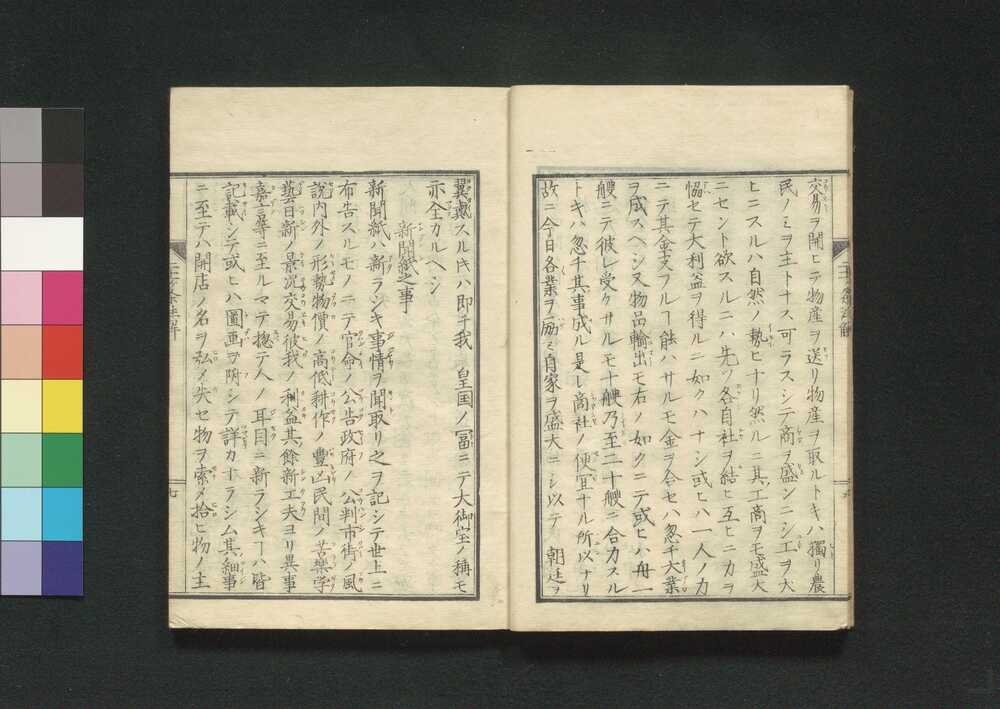 交易ヲ開ヒテ物産ヲ送リ物産ヲ取ルトキハ獨リ農
民ノミヲ主トナス可ラスシテ商ヲ盛ンニシ工ヲ大
ヒニスルハ自然ノ勢ヒナリ然ルニ其工商ヲモ盛大
ニセント欲スルニハ先ツ各自社ヲ結ヒ互ヒニカヲ
恊セテ大利益ヲ得ルニ如クハナシ或ヒハ一人ノカ
ニテ其金支フルヿ能ハサルモ金ヲ合セハ忽チ大業
ヲ成スヘシ又物品輸出モ右ノ如クニテ或ヒハ舟一
艘ニテ彼レ受ケサルモ十艘乃至二十艘ニ合カスル
トキハ忽チ其事成ル是レ商社ノ便宜ナル所以ナリ
故ニ今日各業ヲ励ミ自家ヲ盛大ニシ以テ 朝廷ヲ
翼戴スルキハ即チ我 皇国ノ冨ニテ大御宝ノ稱モ
亦全カルヘシ
新聞紙之事
新聞紙ハ新ラシキ事情ヲ聞取リ之ヲ記シテ世上ニ
布告スルモノニテ官命ノ公告政府ノ公判市街ノ風
説内外ノ形勢物價ノ高低耕作ノ豊凶民間ノ苦樂学
藝日新ノ景況交易彼我ノ利益其餘新工夫ヨリ異事
嘉言等ニ至ルマテ揔テ人ノ耳目ニ新ラシキヿハ皆
記載シテ或ヒハ圖画ヲ附シテ詳カナラシム其細事
ニ至テハ開店ノ名ヲ弘メ失セ物ヲ索メ拾ヒ物ノ主
七